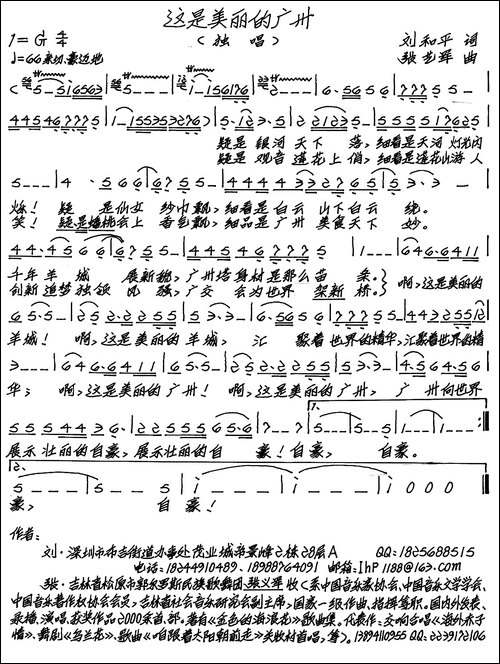 这是美丽的广州
(独唱)
1=G 4/4
刘和平 词
♩=66 亲切、豪迈地
张艺军 曲
疑是 银河 天下 落,细看是天河 灯光闪
疑是 观音 莲花上 俏,细看是莲花山游 人
烁! 疑 是仙女 纱巾飘,细看是 白云 山下白云 绕。
笑! 疑是蟠桃会上 香色飘,细品是 广州 美食天下 妙。
千年 羊 城 展新貌,广州塔身材是那么苗 条。
创新 追梦独领 风 骚,广交 会为世界 架新 桥。
啊,这是美丽的
羊城! 啊,这是美丽的 羊城, 汇 聚着 世界的精华,汇聚着世界的精
华; 啊,这是美丽的 广州! 啊,这是美丽的 广州, 广 州向世界
展示 壮丽的自豪,展示壮丽的自 豪!自豪, 自豪。
1.
2.
豪, 自 豪!
作者:
刘·深圳市布吉街道办事处茂业城帝景峰2栋28层A QQ:1825688515
电话:18244910489、18988764091 邮箱:Ihp1188@163.com
张·吉林省松原市郭尔罗斯民族歌舞团·张艺军收(系中国音乐家协会、中国音乐文学学会、
中国音乐著作权协会会员,吉林省社会音乐研究会副主席,国家一级作曲,指挥等职。国内外发表、
录播、演唱、获奖作品2000余首、部。著有《金色的海浪花》歌曲集。代表作:交响合唱《海外赤子
情》、舞剧《乌兰花》、歌曲《咱跟着太阳朝前走》关牧村首唱,等)。13894110955 QQ:2239172106